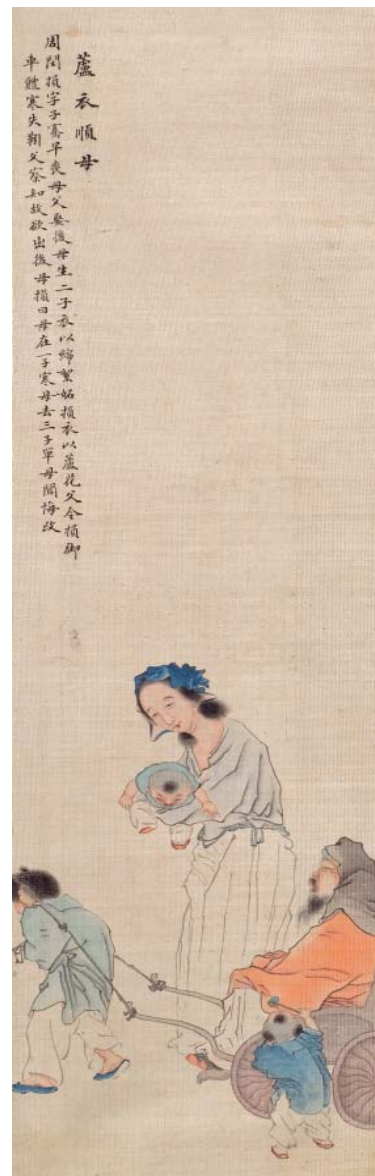 蘆衣順母
周閔損字子騫早喪母父娶後母生二子衣以綿絮妬損衣以蘆花父令損御
車體寒失靷父察知故欲出後母損曰母在一子寒母去三子單母聞悔改